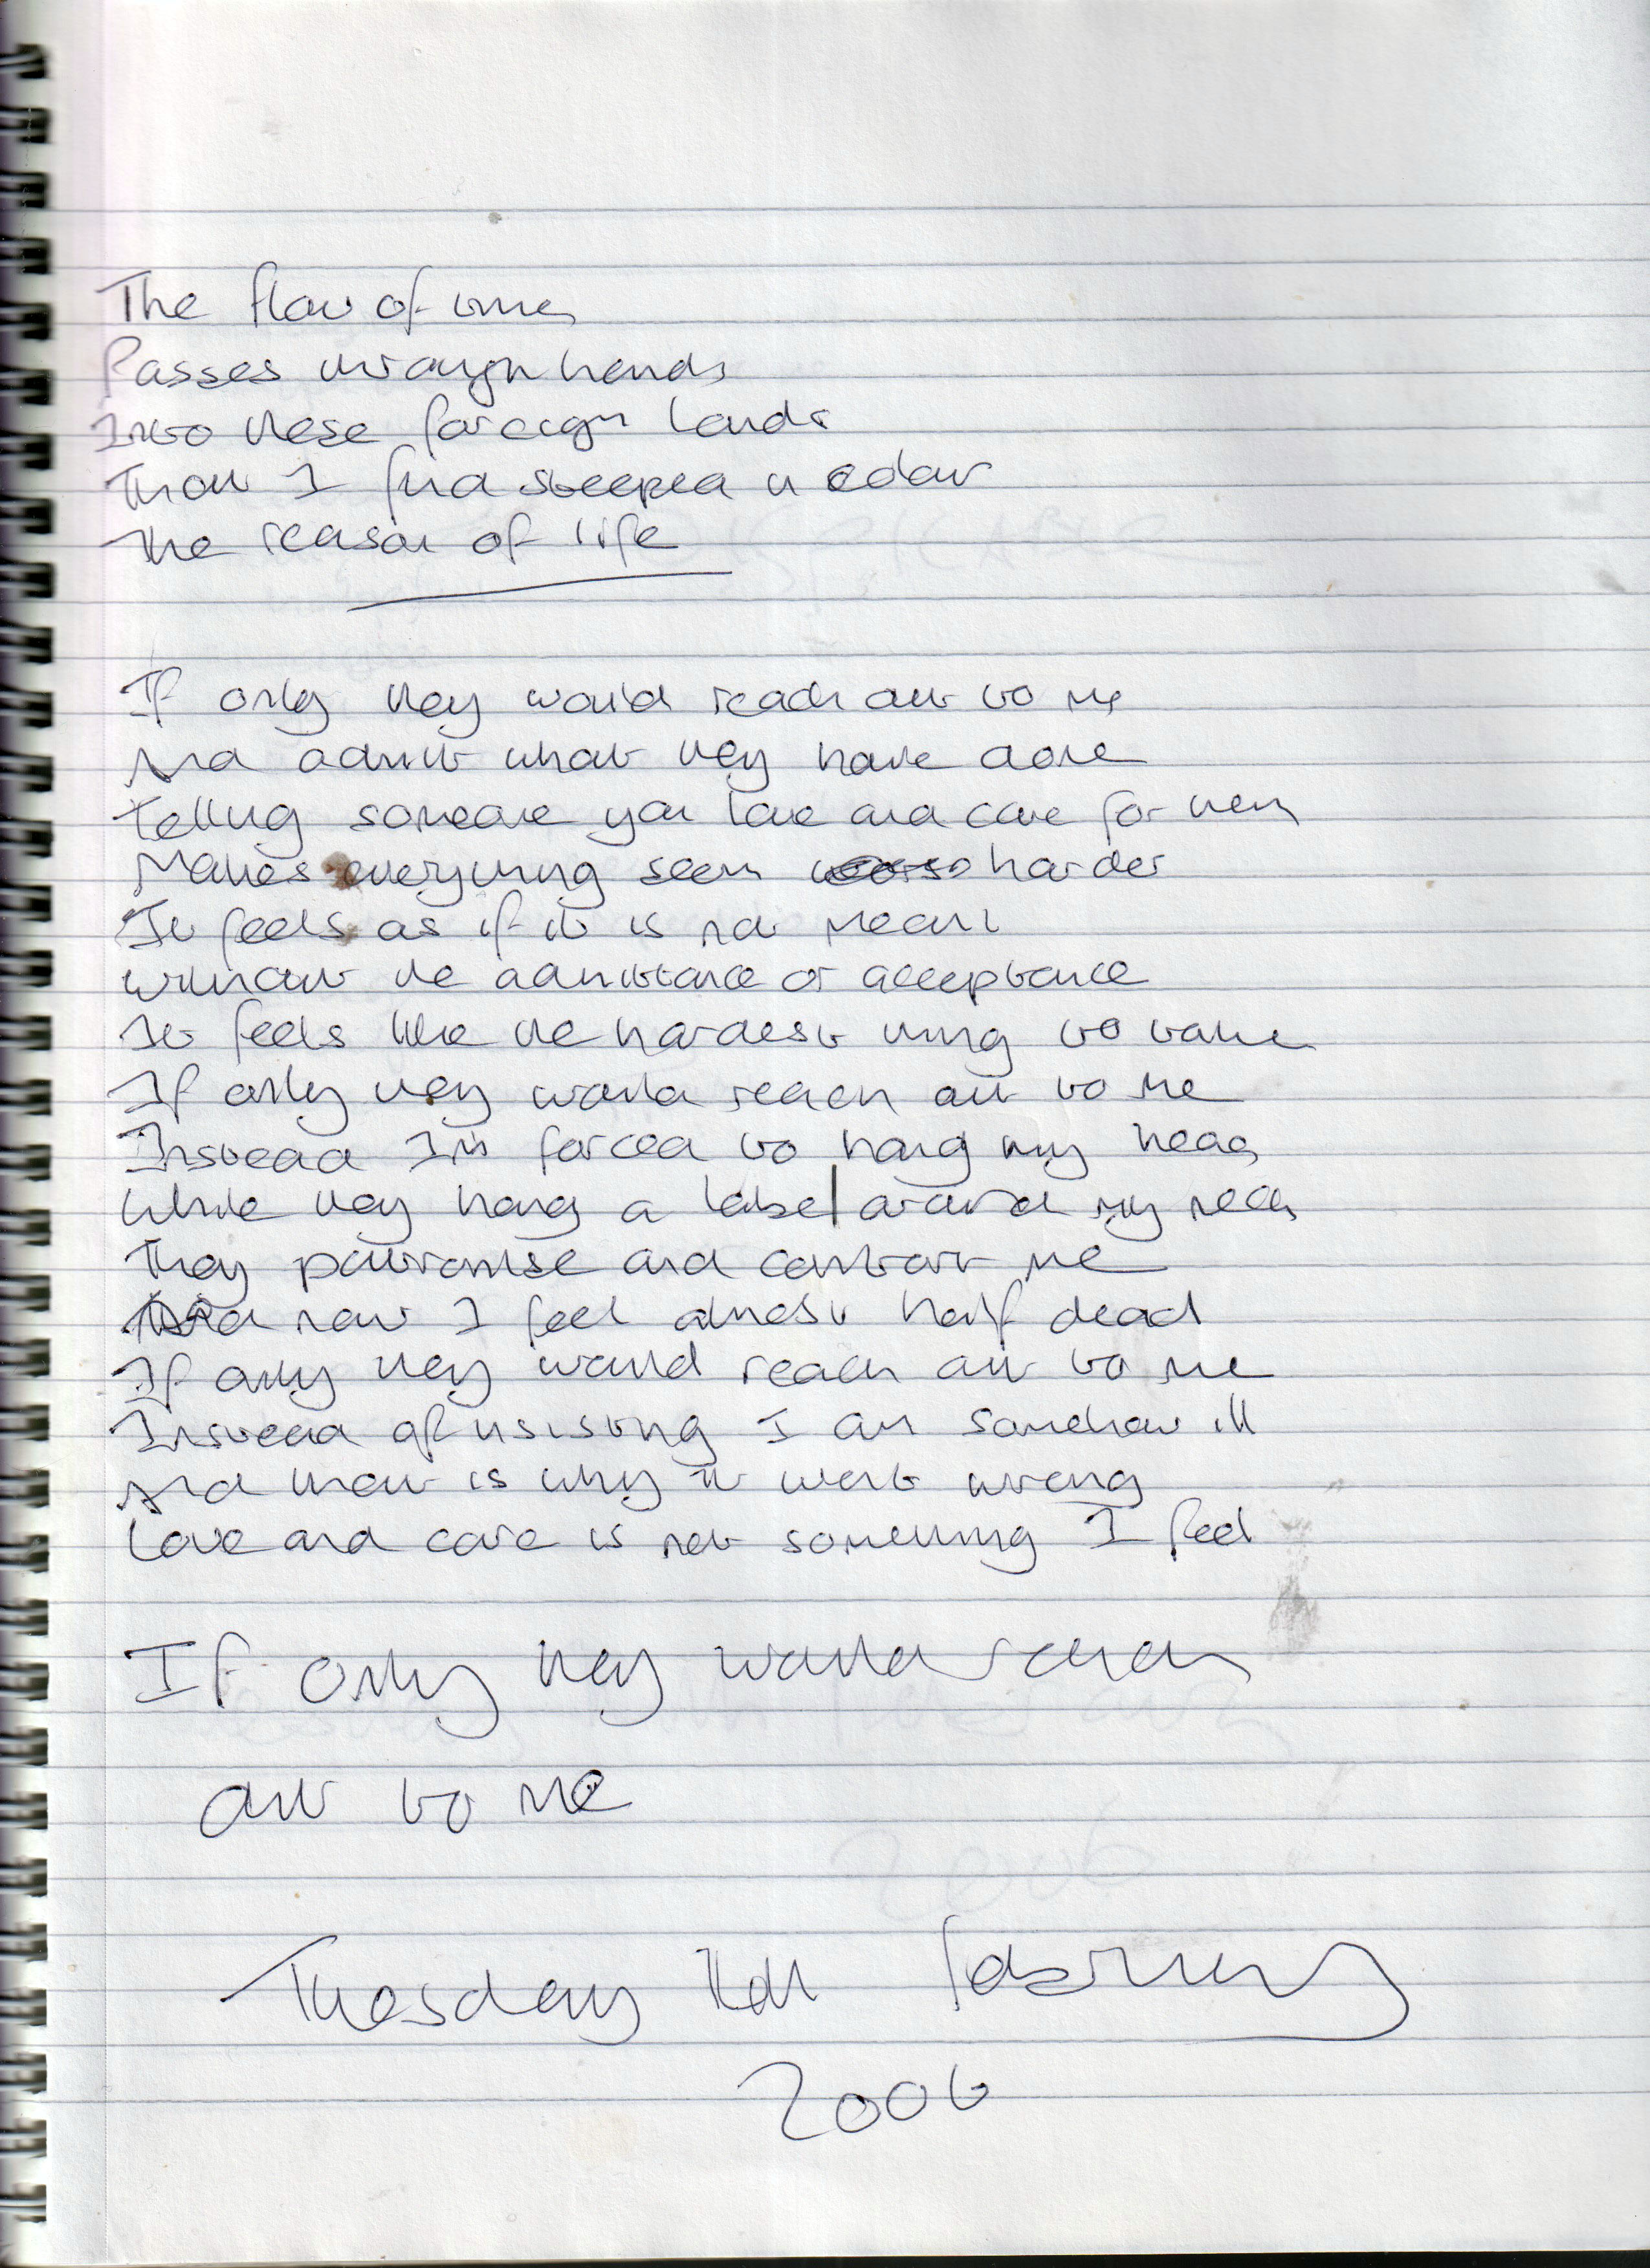 The flow of time
Passes through hands
Into these foreign lands
That I find steeped in odour
The reason of life
If only they would reach out to me
And admit what they have done
Telling someone you love and care for them
Makes everything seem worse harder
It feels as if it is not meant
Without the admittance or acceptance
It feels like the hardest thing to take
If only they would reach out to me
Instead I'm forced to hang my head
While they hang a label around my neck
They patronise and contort me
And now I feel almost half dead
If only they would reach out to me
Instead of insisting I am somehow ill
And that is why it went wrong
Love and care is not something I feel
If only they would reach
out to me
Tuesday 11th February
2006